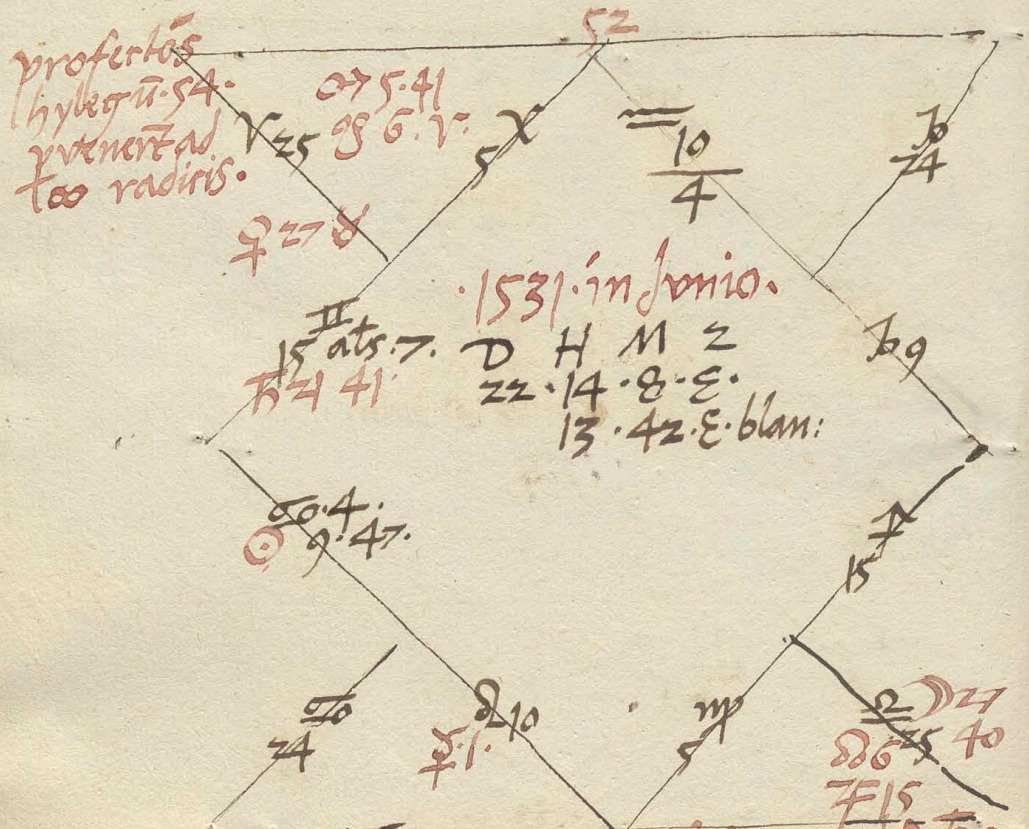 52
profectōs
hyleg ū·54·
pvenert̄ ad
radicis·
♂ 5·41
☋ 6·♈·
♈ 25
♓
5
♒
10
4
♑
24
♀ 27 ♉
·1531·in Junio·
♊
15 als·7·
♄ 21 41
D H M Z
22·14·8·Ɛ·
13·42·Ɛ·blan:
♑ 9
♋·4·
☉ 9·47·
♐
15
♋
24
♌ 10
☿·1·
♍
5
♎ ☽ 27
25 40
☊ 6
♃ 15